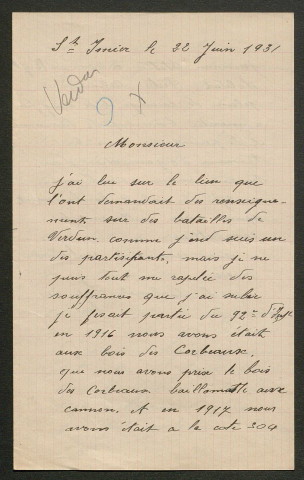 St Imier le 22 Juin 1931
Verdun
Monsieur
j'ai lue sur le lien que
l'ont demandait des renseigne-
ment sur des batailles de
Verdun. comme j'end suis un
des partisipants mais je ne
puis tout me rapelée des
souffrances que j'ai subir
je fesait partie du 92me d'Inf.
en 1916 nous avons était
aux bois des Corbeaux.
que nous avons prise le bois
des Corbeaux baillonnette aux
cannon. A en 1917 nous
avons était a la cote 304